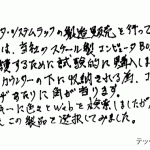 タ・システムラックの製造販売を行って
は、当社のスチール製コンピュータBo
績するために試験的に購入しま
カウンターの下に収納される為、
ずあたりに角が有ります。
ーに色々とWebを検索しましたが
、この製品を選択してみました。
テッ